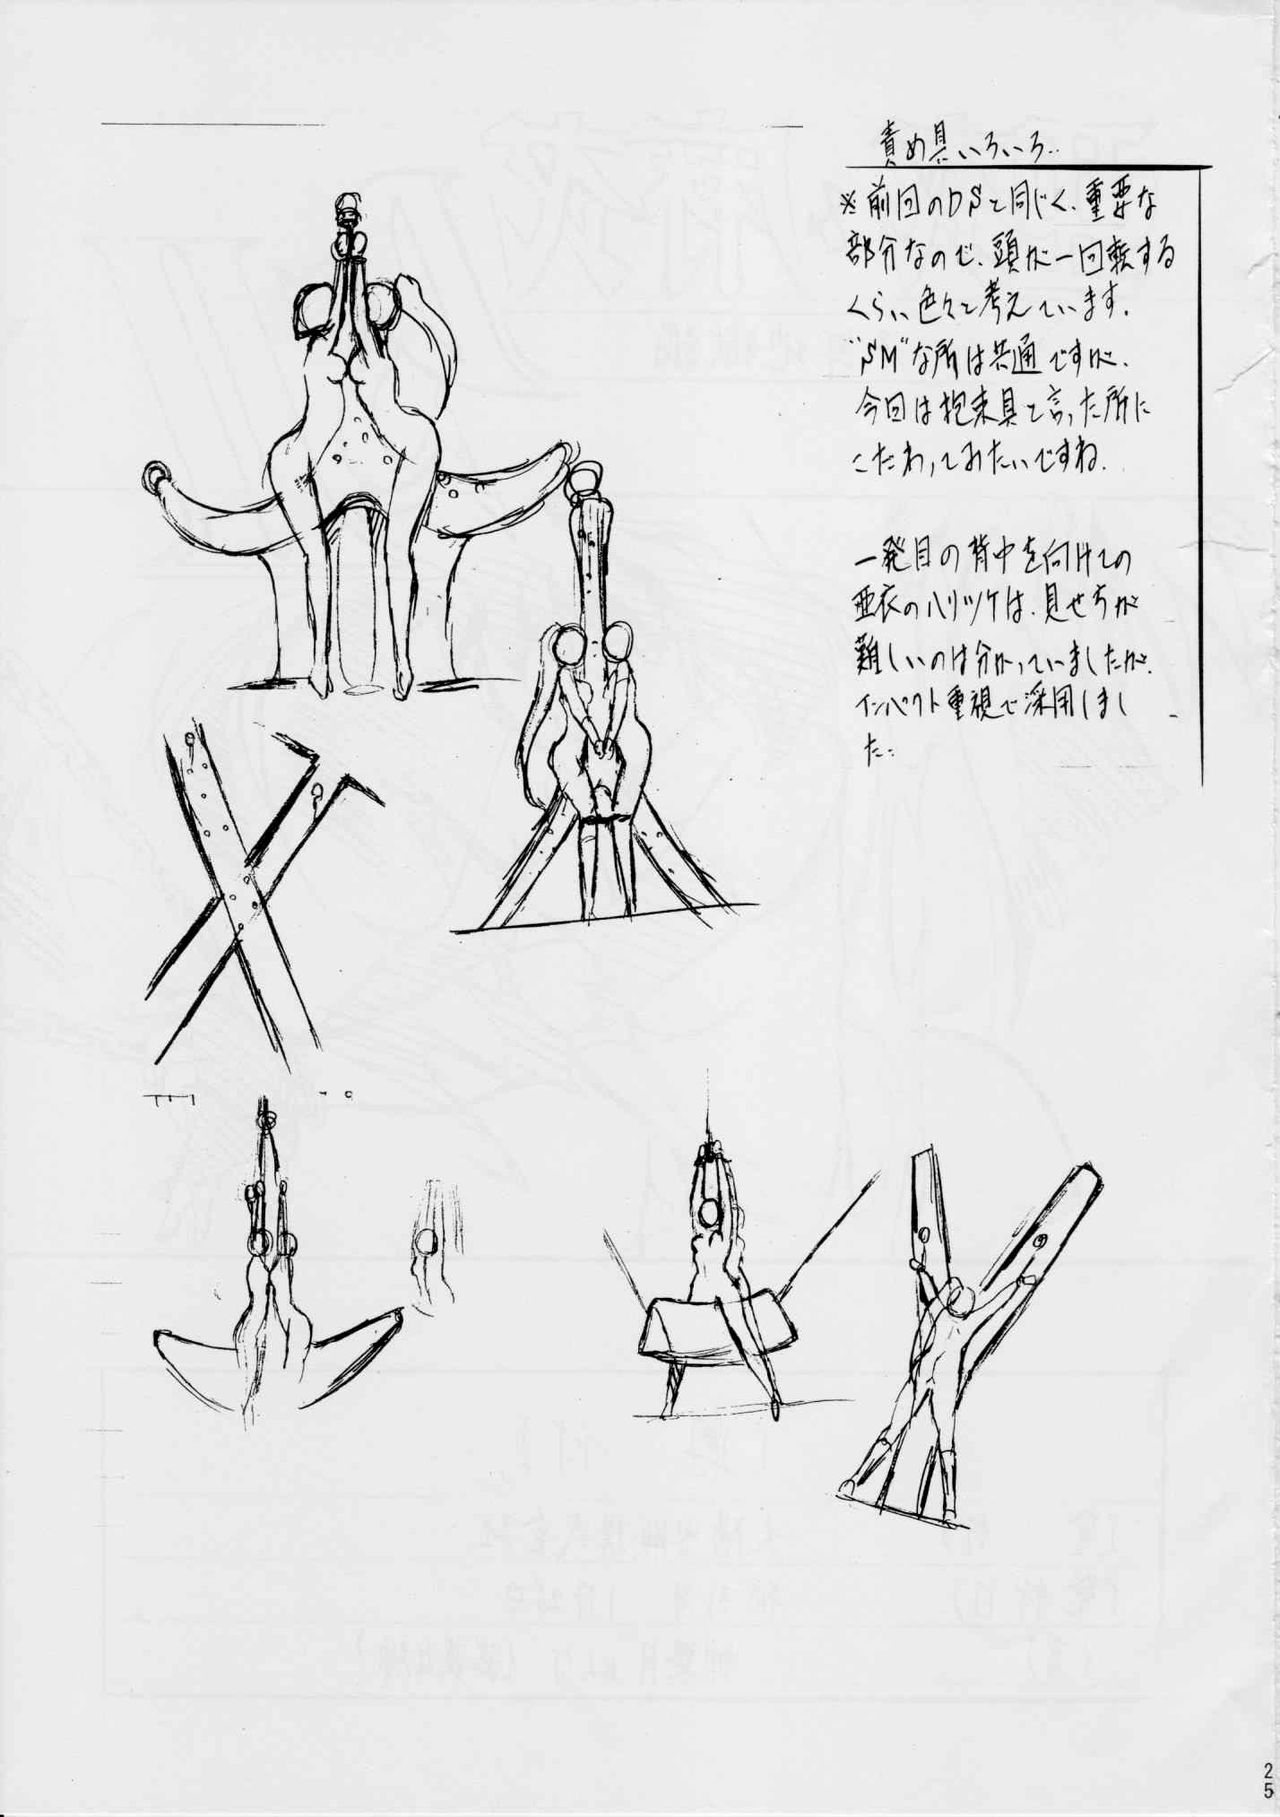 責め具いろいろ..
※前回のDSと同じく、重要な
部分なので、頭が一回転する
くらい色々と考えています.
"SM"な所は共通ですが、
今回は拘束具と言った所に
こだわってみたいですね.
一発目の背中を向けての
亜衣のハリツケは、見せ方が
難しいのは分かっていましたが、
インパクト重視で採用しまし
た..
25